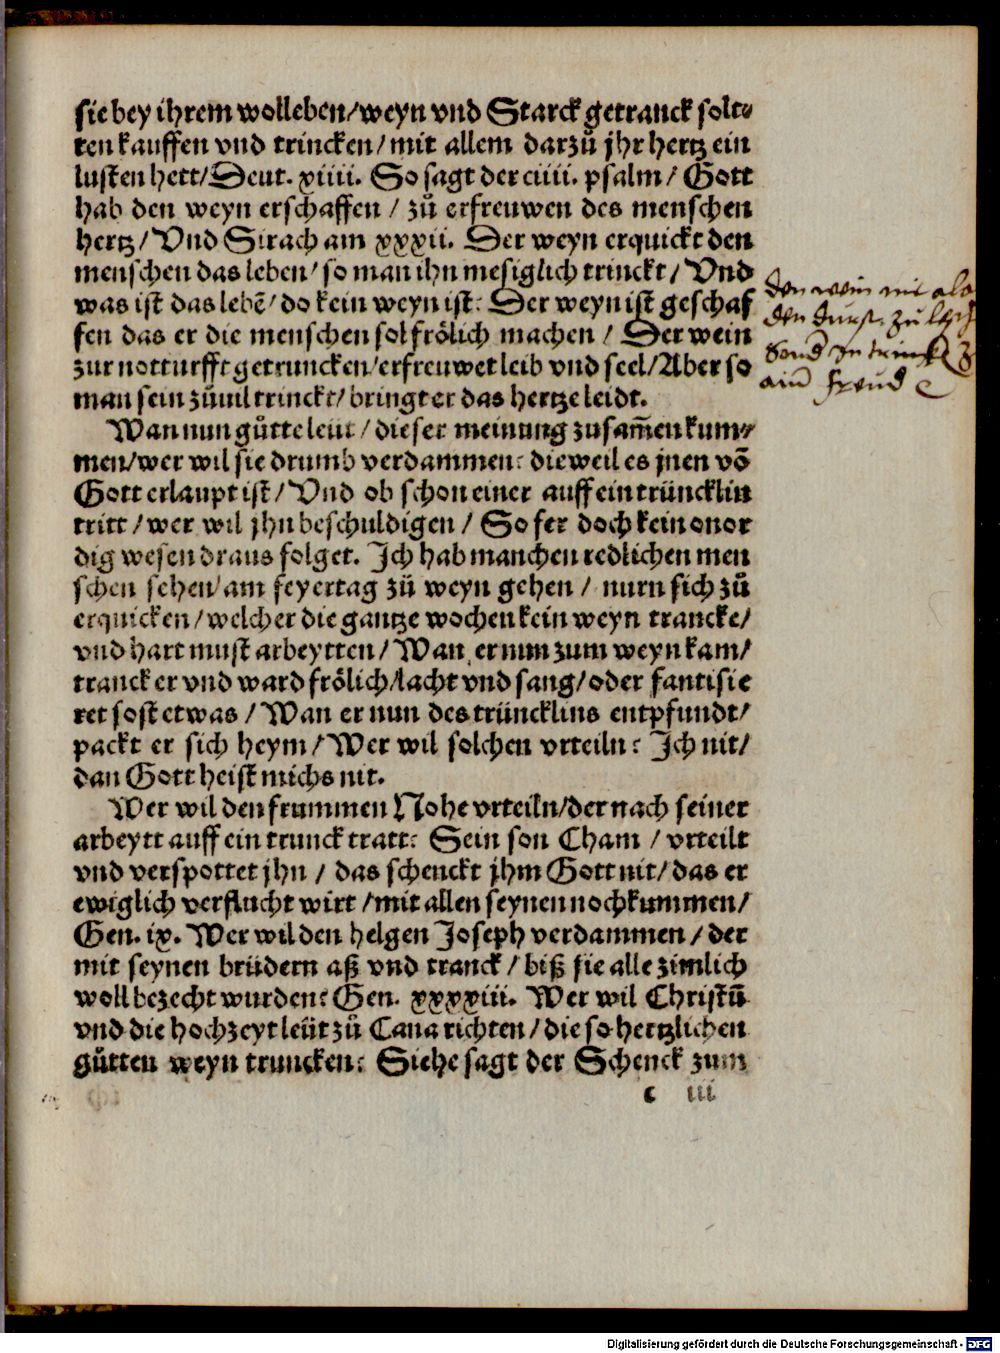 sie bey ihrem wolleben/weyn vnd Starck getranck solt⸗
ten kauffen vnd trincken/mit allem darzů jhr hertz ein
lusten hett/Deut. xiiii. So sagt der ciiii. psalm/ Gott
hab den weyn erschaffen / zů erfreuwen des menschen
hertz/ Vnd Sirach am xxxii. Der weyn erquickt den
menschen das leben/ so man ihn mesiglich trinckt/ Vnd
was ist das lebẽ/ do kein weyn ist: Der weyn ist geschaf
fen das er die menschen sol frölich machen / Der wein
zur notturfft getruncken/erfreuwet leib vnd seel/Aber so
man sein zůuil trinckt/ bringt er das hertzeleidt.
Wan nun gůtte leüt / dieser meinung zusam̃en kum⸗
men/wer wil sie drumb verdammen: dieweil es jnen võ
Gott erlaupt ist/ Vnd ob schon einer auff ein trüncklin
tritt / wer wil jhn beschuldigen / So fer doch kein onor
dig wesen draus folget. Ich hab manchen redlichen men
schen sehen/ am feyertag zů weyn gehen / nurn sich zů
erquicken/welcher die gantze wochen kein weyn trancke/
vnd hart must arbeytten/ Wan er nun zum weyn kam/
tranck er vnd ward frölich/lacht vnd sang/oder fantisie
ret sost etwas / Wan er nun des trüncklins entpfundt/
packt er sich heym/ Wer wil solchen vrteiln: Ich nit/
dan Gott heist michs nit.
Wer wil den frummen Nohe vrteiln/der nach seiner
arbeytt auff ein trunck tratt: Sein son Cham / vrteilt
vnd verspottet jhn / das schenckt jhm Gott nit/das er
ewiglich verflucht wirt /mit allen seynen nochkummen/
Gen. ix. Wer wil den helgen Joseph verdammen/ der
mit seynen brüdern aß vnd tranck / biß sie alle zimlich
woll bezecht wurden: Gen. xxxxiii. Wer wil Christũ
vnd die hochzeyt leüt zů Cana richten/die so hertzlichen
gůtten weyn truncken: Siehe sagt der Schenck zum
c iii
den wein nit
den durst zu
freud
Digitalisierung gefördert durch die Deutsche Forschungsgemeinschaft - DFG